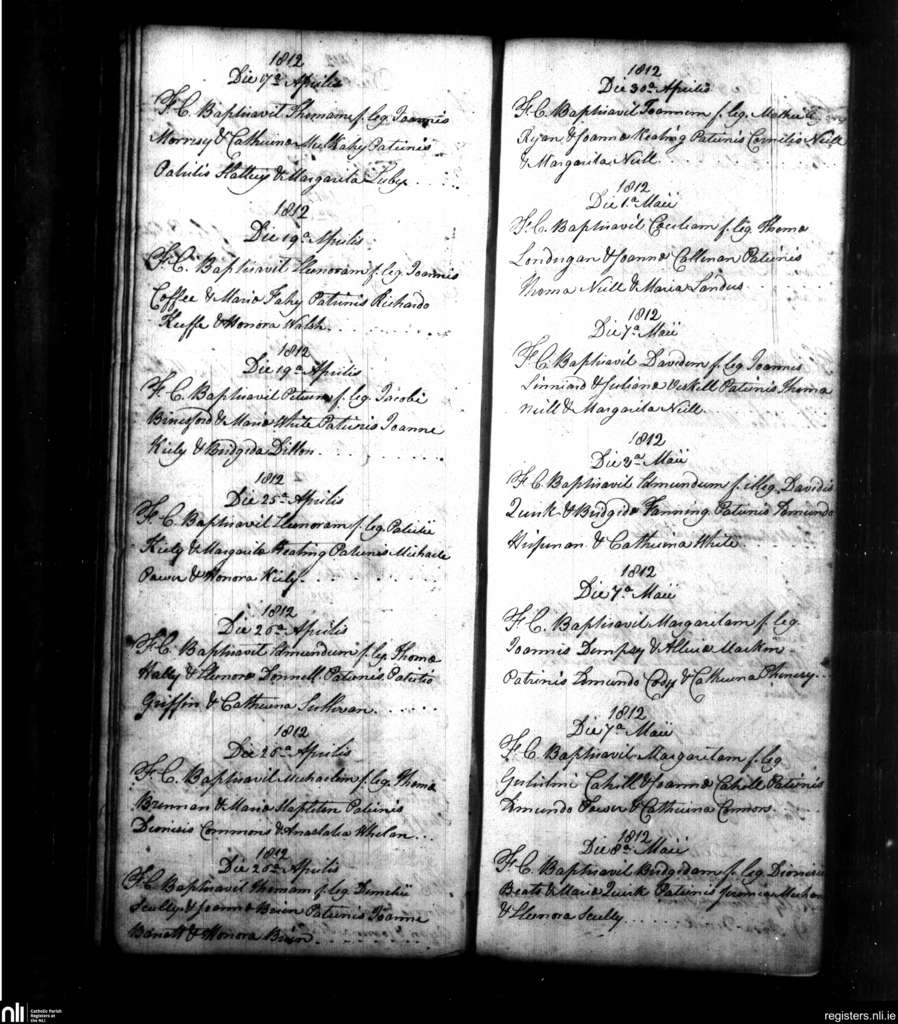 1812
Die 17a Aprilis
F. C. Baptisavit Thomam f. leg. Joannis
Morrisy & Catherina Mulkahy Patrinis
Patritio Slattery & Margarita Luby
1812
Die 19a Aprilis
F. C. Baptisavit Elenoram f. leg. Joannis
Coffee & Maria Fahy Patrinis Richardo
Keeffe & Honora Walsh
1812
Die 19a Aprilis
F. C. Baptisavit Petrum f. leg. Jacobi
& Maria White Patrinis Joanne
Kiely & Bridgida Dillon
1812
Die 25a Aprilis
F. C. Baptisavit Elenoram f. leg. Patritii
Kiely & Margarita Keating Patrinis Michaele
Power & Honora Kiely
1812
Die 26a Aprilis
F. C. Baptisavit Edmundum f. leg. Thoma
Hally & Elenora Donnell Patrinis Patritio
Griffin & Catherina Sullivan
1812
Die 26a Aprilis
F. C. Baptisavit Michaelem f. leg. Thoma
Brennan & Maria Stapleton Patrinis
Dionisio Commons & Anastatia Whelan
1812
Die 26a Aprilis
F. C. Baptisavit Thomam f. leg.
Scully & Joanna Brien Patrinis Joanne
Barrett & Honora Brien
1812
Die 30a Aprilis
F. C. Baptisavit Joannem f. leg. Mathei
Ryan & Joanna Keating Patrinis Cornelio Neill
& Margarita Neill
1812
Die 1a Maii
F. C. Baptisavit Ceciliam f. leg. Thoma
Londergan & Joanna Callinan Patrinis
Thoma Neill & Maria Landers
1812
Die 7a Maii
F. C. Baptisavit Davidem f. leg. Joannis
& Juliana Patrinis Thoma
Neill & Margarita Neill
1812
Die Maii
F. C. Baptisavit Edmundum f. illeg. Davidis
Quirk & Bridgida Fanning Patrinis Edmundo
& Catherina White
1812
Die 7a Maii
F. C. Baptisavit Margaritam f. leg.
Joannis Dempsy & Mackin
Patrinis Edmundo Cody & Catherina
1812
Die 7a Maii
F. C. Baptisavit Margaritam f. leg.
Gulielmi Cahill & Joanna Cahill Patrinis
Edmundo Power & Catherina Connors
1812
Die 8a Maii
F. C. Baptisavit Bridgidam f. leg. Dionisii
& Maria Quirk Patrinis
& Elenora Scully
nli Catholic Parish
Registers at
the NLI
registers.nli.ie